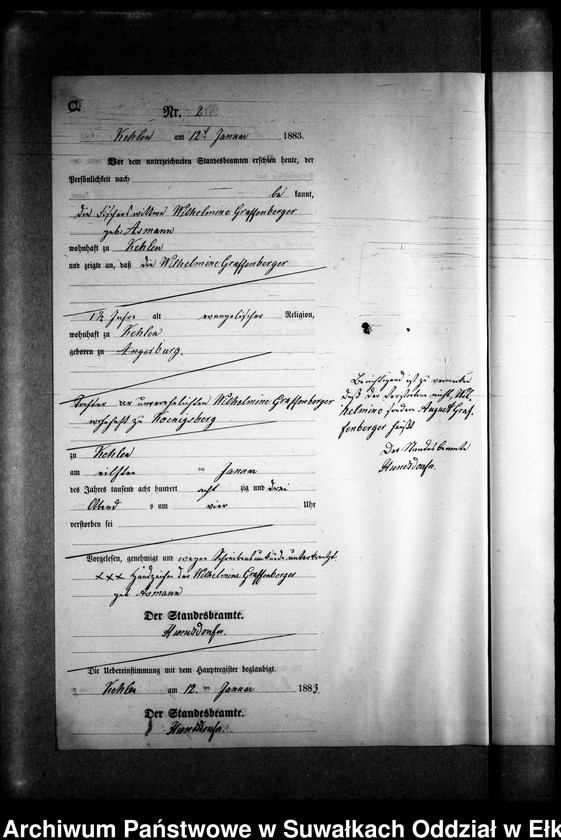 C.
Nr. 2
Kehlen am 12t Januar 1883.
Vor dem unterzeichneten Standesbeamten erschien heute, der
Persönlichkeit nach
be kannt,
die Fischerswittwe Wilhelmine Graffenberger
geb. Asmann
wohnhaft zu Kehlen
und zeigte an, daß die Wilhelmine Graffenberger
1½ Jahre alt evangelischer Religion,
wohnhaft zu Kehlen
geboren zu Angerburg,
Tochter der unverehelichten Wilhelmine Graffenberger
wohnhaft zu Koenigsberg
zu Kehlen
am eilften ten Januar
des Jahres tausend acht hundert acht zig und drei
Abend s um vier Uhr
verstorben sei
Vorgelesen, genehmigt und wegen Schreibensunkunde unterkreuzt
xxx Handzeichen der Wilhelmine Graffenberger
geb Asmann
Der Standesbeamte.
Die Uebereinstimmung mit dem Hauptregister beglaubigt.
Kehlen am 12. ten Januar 1883.
Der Standesbeamte.
Berichtigend ist zu vermerken
daß der Verstorbene nicht Wil-
helmine sondern August Graf-
fenberger heißt
Der Standesbeamte
Archiwum Państwowe w Suwałkach Oddział w Ełk